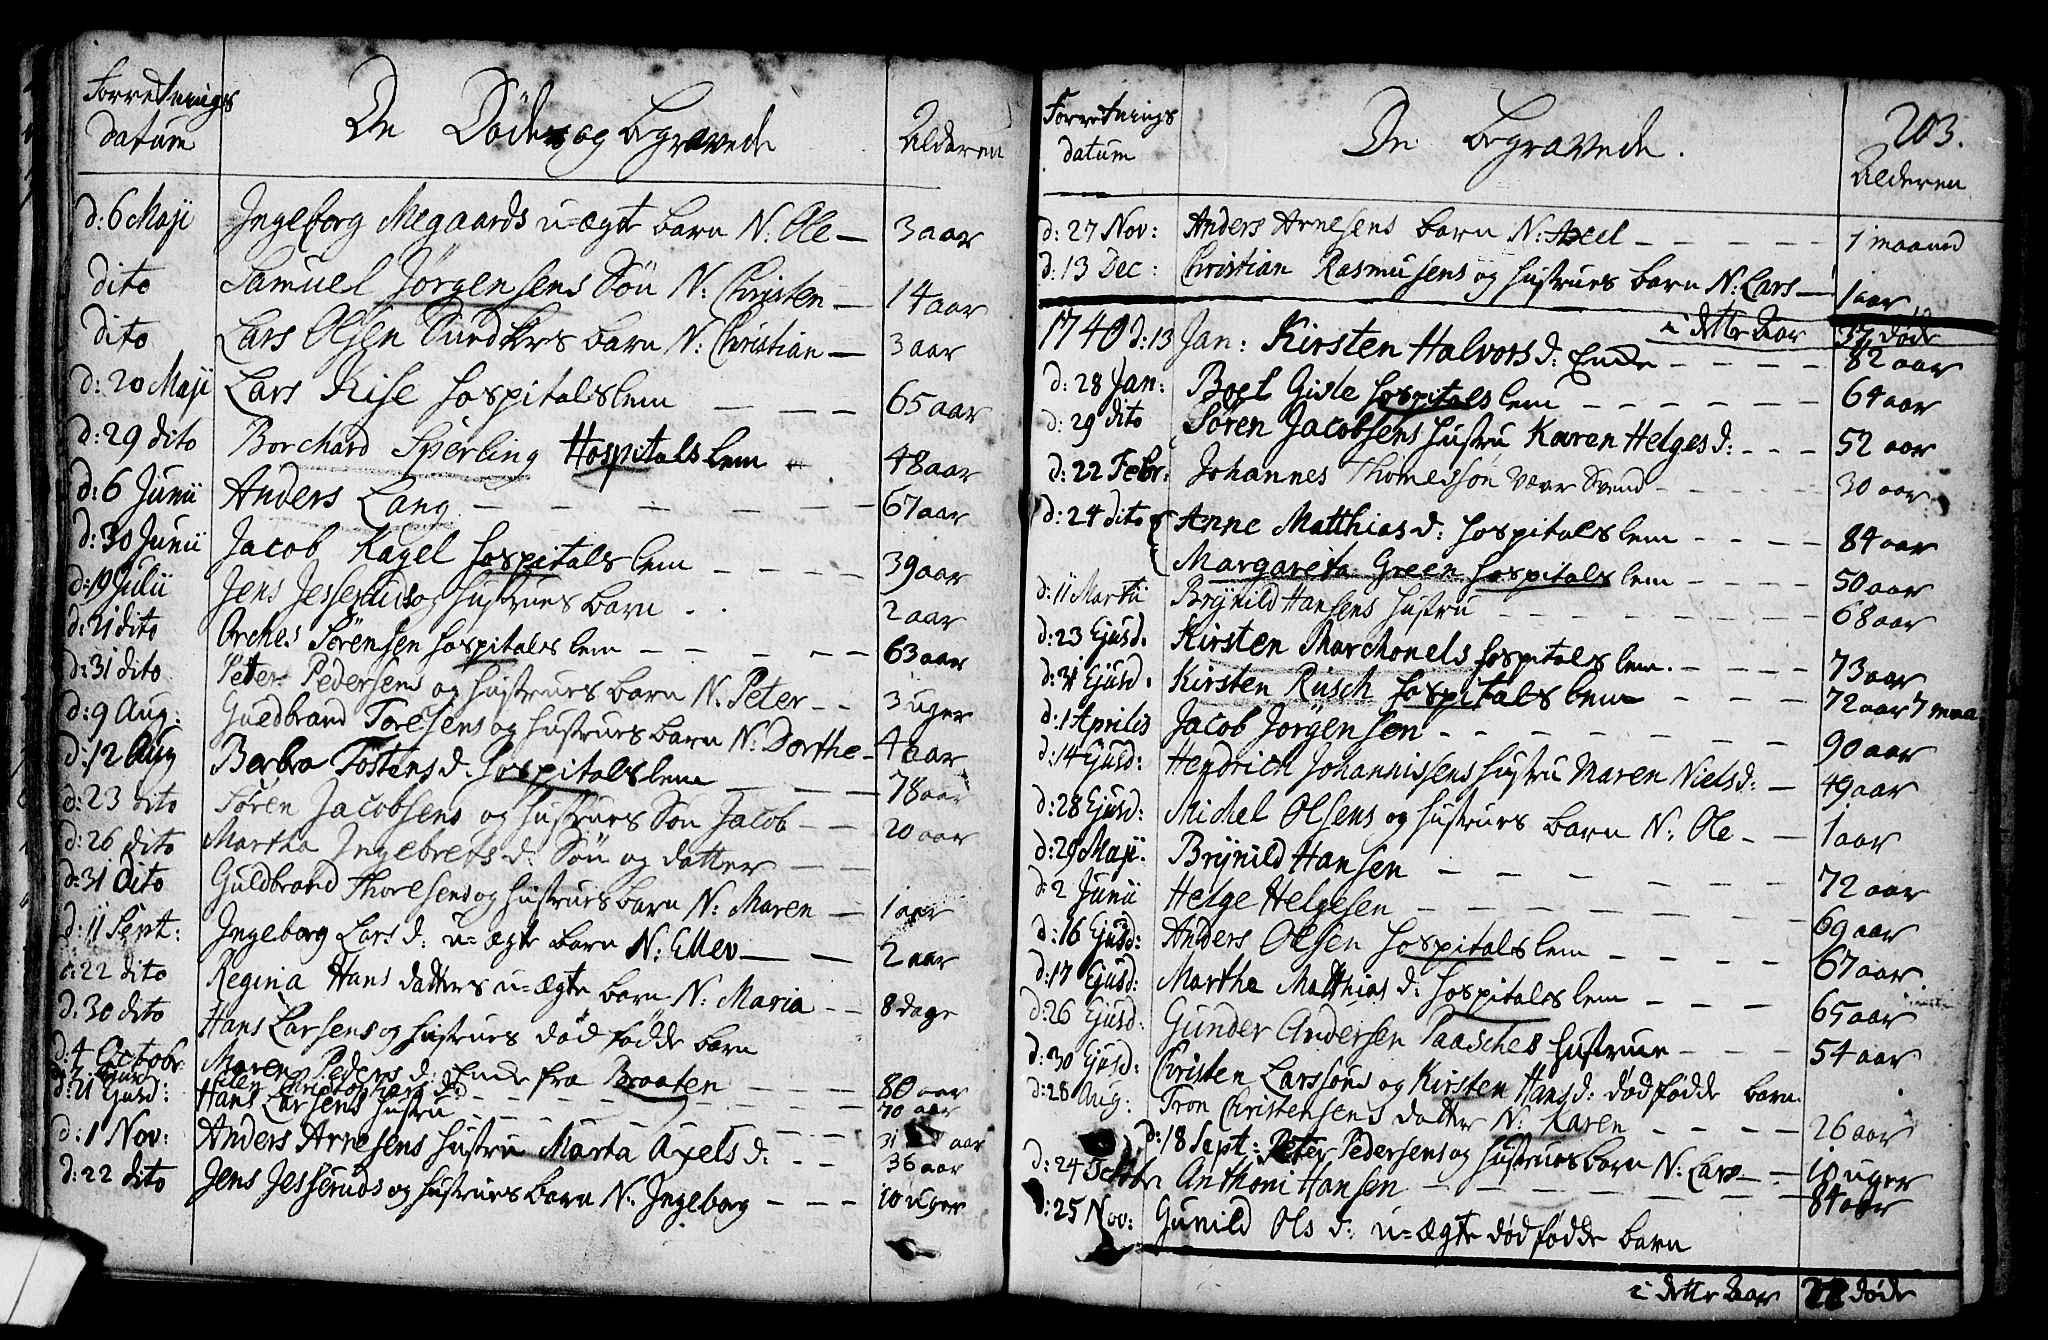 Forretnings datum
De Døde og begravede
Alderen
d: 6 Maji Ingeborg Megaards u-ægte barn N: Ole — 3 aar
dito Samuel Jørgensens Søn N: Christen — 14 aar
dito Lars Olsen Sundbyes barn N: Christian — 3 aar
d: 20 Maji Lars Kise Hospitals lem — — — 65 aar
d: 29 dito Borchard Sperling Hospitals lem 48 aar
d: 6 Junii Anders Lang — — — — — — 67 aar
d: 30 Junii Jacob Kagel Hospitals lem — — — — 39 aar
d: 19 Julii Jens Jesseruds og Hustrues barn 2 aar
d: 21 dito Orches Sørensen Hospitals lem — — — — — 63 aar
d: 31 dito Peter Pedersens og Hustrues barn N: Peter — — 3 uger
d: 9 Aug: Guldbrand Toresens og Hustrues barn N: Dorthe — 4 aar
d: 12 Aug Barbra Tostens d: Hospitals lem — — — 78 aar
d: 23 dito Søren Jacobsens og Hustrues Søn Jacob — — 20 aar
d: 26 dito Martha Ingebrets d: Søn og datter — —
d: 31 dito Guldbrand Thoresens og Hustrues barn N: Maren — 1 aar
d: 11 Sept: Ingeborg Lars d: u-ægte barn N: Ellev — — 2 aar
d: 22 dito Regina Hans datters u-ægte barn N: Maria — — 8 dage
d: 30 dito Hans Larsens og Hustrues død fødde barn
d: 4 Octobr: Maren Peders d: Enke fra Braaten — — — 80 aar
Ellen Christophers d: — — — 70 aar
d: 21 Ejusd: Hans Larsens Hustru — — — 31 aar
d: 1 Nov: Anders Arnesens Hustru Marta Axels d: — — 36 aar
d: 22 dito Jens Jesseruds og Hustrues barn N: Ingeborg — — — 10 uger
Forretnings datum
De begravede.
203.
Alderen
d: 27 Nov: Anders Arnesens barn N: Axel — — — — — 1 maaned
d: 13 Dec: Christian Rasmusens og Hustrues barn N: Lars — 1 aar
i dette Aar 37 døde
1740 d: 13 Jan: Kirsten Halvors d: Enke — — — — 82 aar
d: 28 Jan: Boel Gisle Hospitals lem — — — — — — 64 aar
d: 29 dito Søren Jacobsens Hustru Karen Helges d: — — — 52 aar
d: 22 Febr: Johannes Thomesson Svend — — — — — 30 aar
d: 24 dito Anne Matthias d: Hospitals lem — — — — 84 aar
Margareta Green Hospitals lem — — — — 50 aar
d: 11 Martii Brynild Hansens Hustru — — — — — — 68 aar
d: 23 Ejusd. Kirsten Marchonels Hospitals lem. — — — — 73 aar
d: 31 Ejusd. Kirsten Rusch Hospitals lem — — — — 72 aar 7 maa
d: 1 Aprilis Jacob Jørgensen — — — — — — — 90 aar
d: 14 Ejusd: Hendrich Johannissens Hustru Maren Niels d: — 49 aar
d: 28 Ejusd: Michel Olsens og Hustrues barn N: Ole — — 1 aar
d: 29 Maji. Brynild Hansen — — — — — — 72 aar
d: 2 Junii Helge Helgesen — — — — — — — 69 aar
d: 16 Ejusd: Anders Olsen Hospitals lem — — — — 67 aar
d: 17 Ejusd: Martha Matthias d: Hospitals lem — — — 65 aar
d: 26 Ejusd: Gunder Andersen Paasches Hustrue — — — 54 aar
d: 30 Ejusd: Christen Larssøns og Kirsten Hans d: død fødde barn.
d: 28 Aug: Tron Christensens datter N: Karen — — — — 26 aar
d: 18 Sept: Peter Pedersens og Hustrues barn N: Lars — — 10 uger
d: 24 Octobr Anthoni Hansen — — — — — — 84 aar
d: 25 Nov: Gunild Ols d: u-ægte død fødde barn
i dette Aar 22 døde